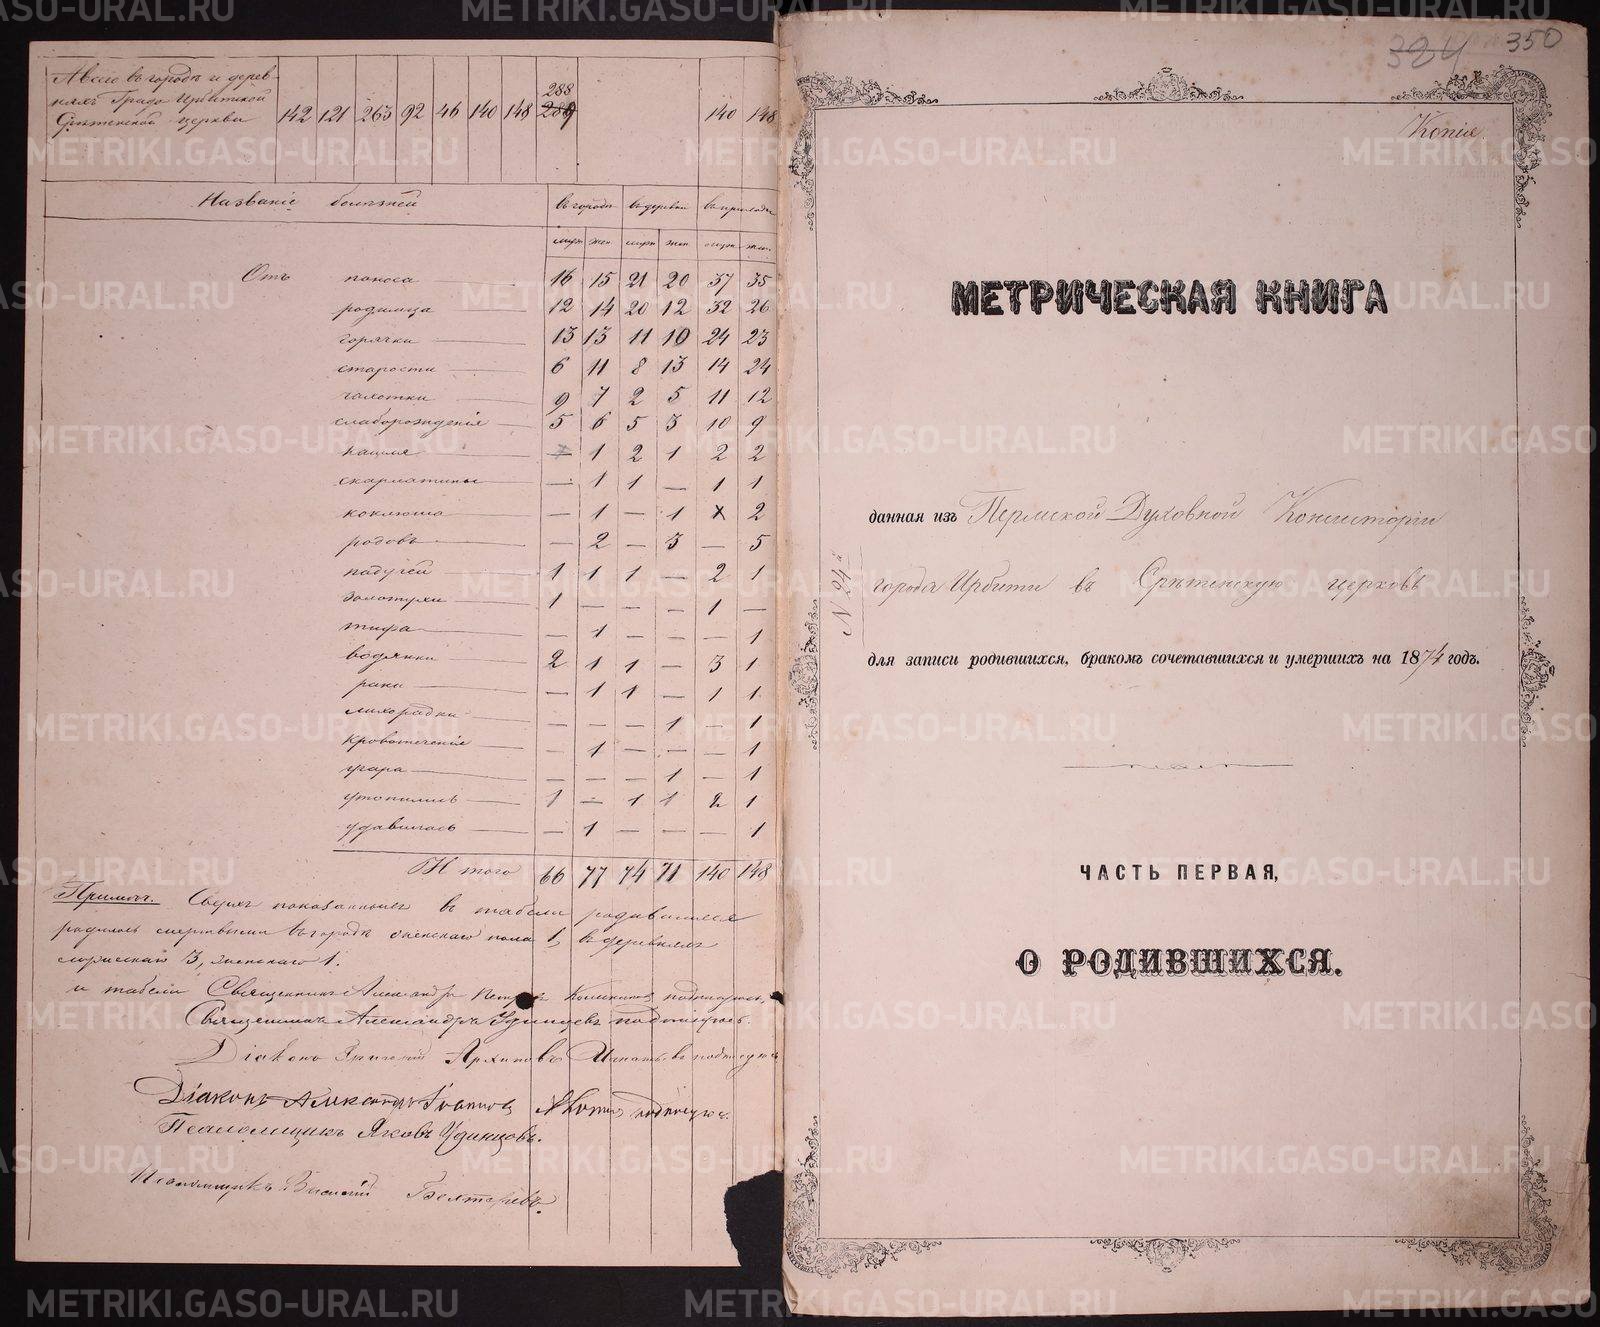 А всего въ городѣ и дерев-
няхъ Градо Ирбитской
Срѣтенской церкви 142 121 263 92 46 140 148 288 289 140 148
Названіе болѣзней въ городѣ въ деревн въ приходѣ
муж жен муж жен муж жен.
Отъ поноса 16 15 21 20 37 35
родимца 12 14 20 12 32 26
горячки 13 13 11 10 24 23
старости 6 11 8 13 14 24
чахотки 9 7 2 5 11 12
слаборожденія 5 6 5 3 10 9
кашля — 1 2 1 2 2
скарлатины — 1 1 — 1 1
коклюша — 1 — 1 2
родовъ — 2 — 3 — 5
падучей 1 1 1 — 2 1
золотухи 1 — — — 1 —
тифа — 1 — — — 1
водянки 2 1 1 — 3 1
рака — 1 1 — 1 1
лихорадки — — — 1 — 1
кровотеченія — 1 — — — 1
угара — — — 1 — 1
утопились 1 — 1 1 2 1
удавилась — 1 — — — 1
Итого 66 77 74 71 140 148
Примѣч. Сверхъ показанныхъ въ табели родившихся
родилось мертвыми въ городѣ женскаго пола 1, въ деревняхъ
мужскаго 3, женскаго 1.
и табели Священникъ Александръ подписуюсь.
Священникъ Александръ Удинцевъ подписуюсь.
Діаконъ Григорій Архиповъ Игнатьевъ подписуюсь
Діаконъ Александръ Іоанновъ подписуюсь.
Псаломщикъ Яковъ Удинцовъ.
Псаломщикъ Василій Белтеревъ.
324 350
Копія
МЕТРИЧЕСКАЯ КНИГА
данная изъ Пермской Духовной Консисторіи
города Ирбити въ Срѣтенскую церковь
N 24й
для записи родившихся, бракомъ сочетавшихся и умершихъ на 1874 годъ.
ЧАСТЬ ПЕРВАЯ,
О РОДИВШИХСЯ.
METRIKI.GASO-URAL.RU